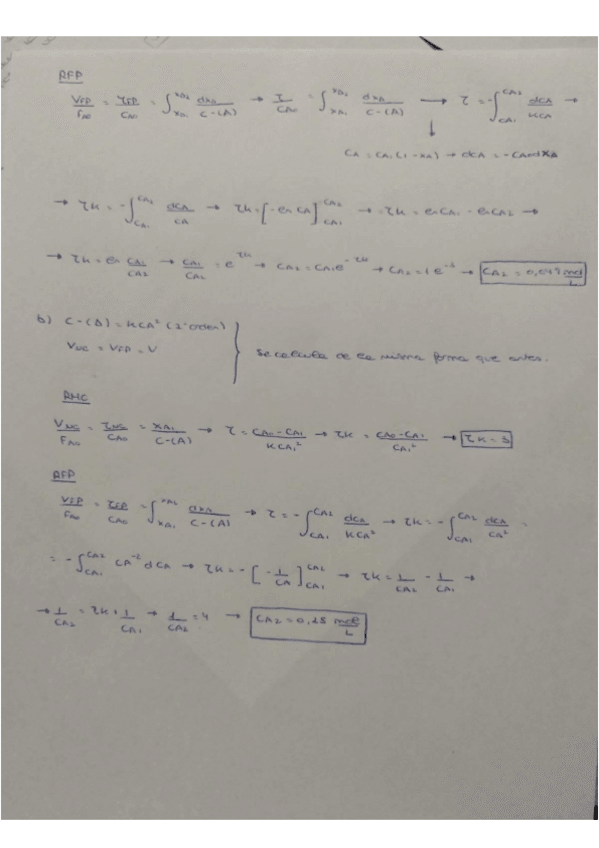 RFP
VFP/FA0 = ζFP/CA0 = ∫_{XA1}^{XA2} dXA/(-(A)) → ζ/CA0 = ∫_{XA1}^{XA2} dXA/(-(A)) → ζ = -∫_{CA1}^{CA2} dCA/KCA →
↓
CA = CA1(1-XA) → dCA = -CA0dXA
→ ζK = -∫_{CA1}^{CA2} dCA/CA → ζK = [-ln CA]_{CA1}^{CA2} → ζK = ln CA1 - ln CA2 →
→ ζK = ln CA1/CA2 → CA1/CA2 = e^{ζK} → CA2 = CA1e^{-ζK} → CA2 = 1e^{-3} → CA2 = 0,049 mol/L
b) (-(A) = KCA² (2º orden)
VMC = VFP = V } Se calcula de la misma forma que antes.
RMC
VMC/FA0 = ζMC/CA0 = XA1/(-(A)) → ζ = CA0-CA1/KCA1² → ζK = CA0-CA1/CA1² → ζK = 3
RFP
VFP/FA0 = ζFP/CA0 = ∫_{XA1}^{XA2} dXA/(-(A)) → ζ = -∫_{CA1}^{CA2} dCA/KCA² → ζK = -∫_{CA1}^{CA2} dCA/CA² =
= -∫_{CA1}^{CA2} CA^{-2} dCA → ζK = -[-1/CA]_{CA1}^{CA2} → ζK = 1/CA2 - 1/CA1 →
→ 1/CA2 = ζK + 1/CA1 → 1/CA2 = 4 → CA2 = 0,25 mol/L